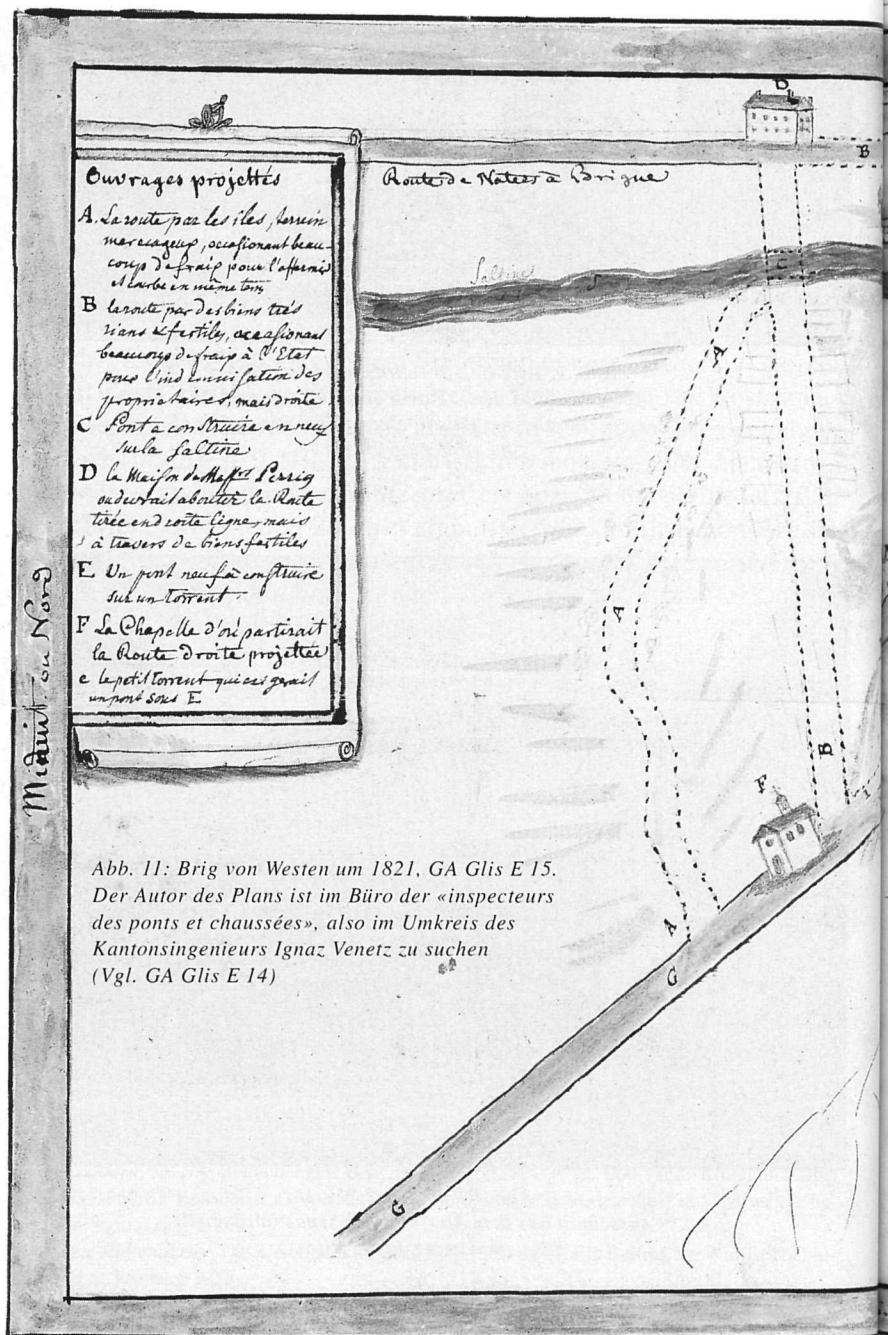 Ouvrages projettés
A. La route par les iles, terrein
marecageux, occasionant beau-
coup de fraix pour l'affermir
et courbe en même tems
B la route par des biens très
rians & fertiles, occasionant
beaucoup de fraix à l'Etat
pour l'indemnisation des
propriétaires, mais droite
C Pont a construire en neuf
sur la Saltine
D la Maison de Mess.rs Perrig
ou devrait aboutir la Route
tirée en droite ligne, mais
à travers de biens fertiles
E Un pont neuf à construire
sur un Torrent
F La Chapelle d'où partirait
la Route droite projettée
e le petit torrent qui
un pont sous E
Route de Naters à Brigue
D
B
Saltine
C
A
A
B
F
A
G
G
Minuit ou Nord
Abb. 11: Brig von Westen um 1821, GA Glis E 15.
Der Autor des Plans ist im Büro der «inspecteurs
des ponts et chaussées», also im Umkreis des
Kantonsingenieurs Ignaz Venetz zu suchen
(Vgl. GA Glis E 14)